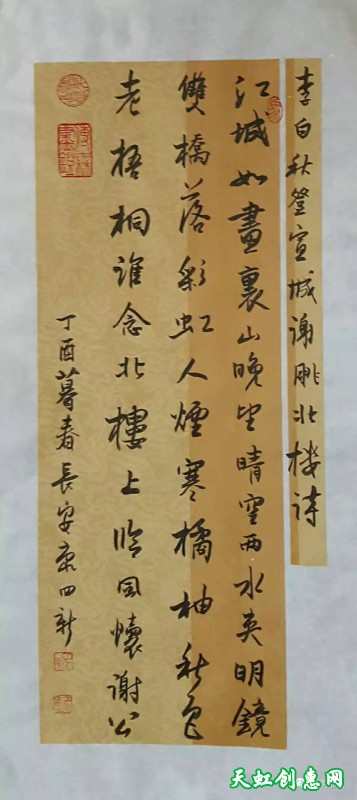 李白秋登宣城谢朓北楼诗
江城如畫裏山晚望晴空两水夹明鏡
雙橋落彩虹人煙寒橘柚秋色
老梧桐谁念北樓上临风懷谢公
丁酉暮春長安康四新
天虹创惠网